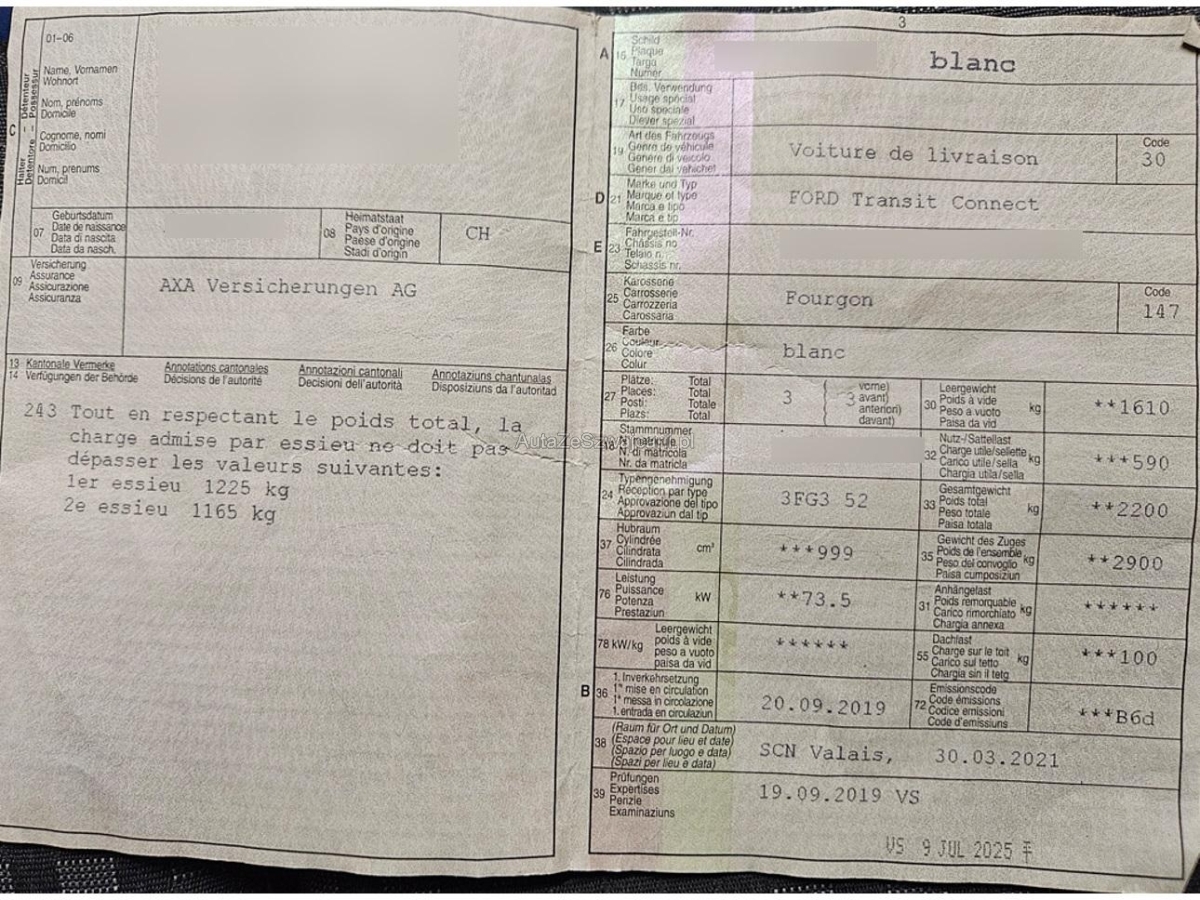 01-06
C
Halter – Détenteur
Detentore – Possessur
Name, Vornamen
Wohnort
Nom, prénoms
Domicile
Cognome, nomi
Domicilio
Num, prenums
Domicil
07
Geburtsdatum
Date de naissance
Data di nascita
Data da nasch.
08
Heimatstaat
Pays d'origine
Paese d'origine
Stadi d'origin
CH
09
Versicherung
Assurance
Assicurazione
Assicuranza
AXA Versicherungen AG
13 Kantonale Vermerke Annotations cantonales Annotazioni cantonali Annotaziuns chantunalas
14 Verfügungen der Behörde Décisions de l'autorité Decisioni dell'autorità Disposiziuns da l'autoritad
243 Tout en respectant le poids total, la
charge admise par essieu ne doit pas
dépasser les valeurs suivantes:
1er essieu 1225 kg
2e essieu 1165 kg
3
A 16
Schild
Plaque
Targa
Numer
blanc
17
Bes. Verwendung
Usage spécial
Uso speciale
Diever spezial
19
Art des Fahrzeugs
Genre de véhicule
Genere di veicolo
Gener dal vehichel
Voiture de livraison
Code
30
D 21
Marke und Typ
Marque et type
Marca e tipo
Marca e tip
FORD Transit Connect
E 23
Fahrgestell-Nr.
Châssis no
Telaio n.
Schassis nr.
25
Karosserie
Carrosserie
Carrozzeria
Carossaria
Fourgon
Code
147
26
Farbe
Couleur
Colore
Colur
blanc
27
Plätze: Total
Places: Total
Posti: Totale
Plazs: Total
3
3
vorne)
avant)
anteriori)
davant)
30
Leergewicht
Poids à vide
Peso a vuoto
Paisa da vid
kg
**1610
18
Stammnummer
N° matricule
N. di matricola
Nr. da matricla
32
Nutz-/Sattellast
Charge utile/sellette
Carico utile/sella
Chargia utila/sella
kg
***590
24
Typengenehmigung
Réception par type
Approvazione del tipo
Approvaziun dal tip
3FG3 52
33
Gesamtgewicht
Poids total
Peso totale
Paisa totala
kg
**2200
37
Hubraum
Cylindrée
Cilindrata
Cilindrada
cm³
***999
35
Gewicht des Zuges
Poids de l'ensemble
Peso del convoglio
Paisa cumposiziun
kg
**2900
76
Leistung
Puissance
Potenza
Prestaziun
kW
**73.5
31
Anhängelast
Poids remorquable
Carico rimorchiato
Chargia annexa
kg
******
78 kW/kg
Leergewicht
poids à vide
peso a vuoto
paisa da vid
******
55
Dachlast
Charge sur le toit
Carico sul tetto
Chargia sin il tetg
kg
***100
B 36
1. Inverkehrsetzung
1re mise en circulation
1a messa in circolazione
1. entrada en circulaziun
20.09.2019
72
Emissionscode
Code émissions
Codice emissioni
Code d'emissiuns
***B6d
38
(Raum für Ort und Datum)
(Espace pour lieu et date)
(Spazio per luogo e data)
(Spazi per lieu e data)
SCN Valais, 30.03.2021
39
Prüfungen
Expertises
Perizie
Examinaziuns
19.09.2019 VS
VS 9 JUL 2025
AutaZeSzwajcarii.pl